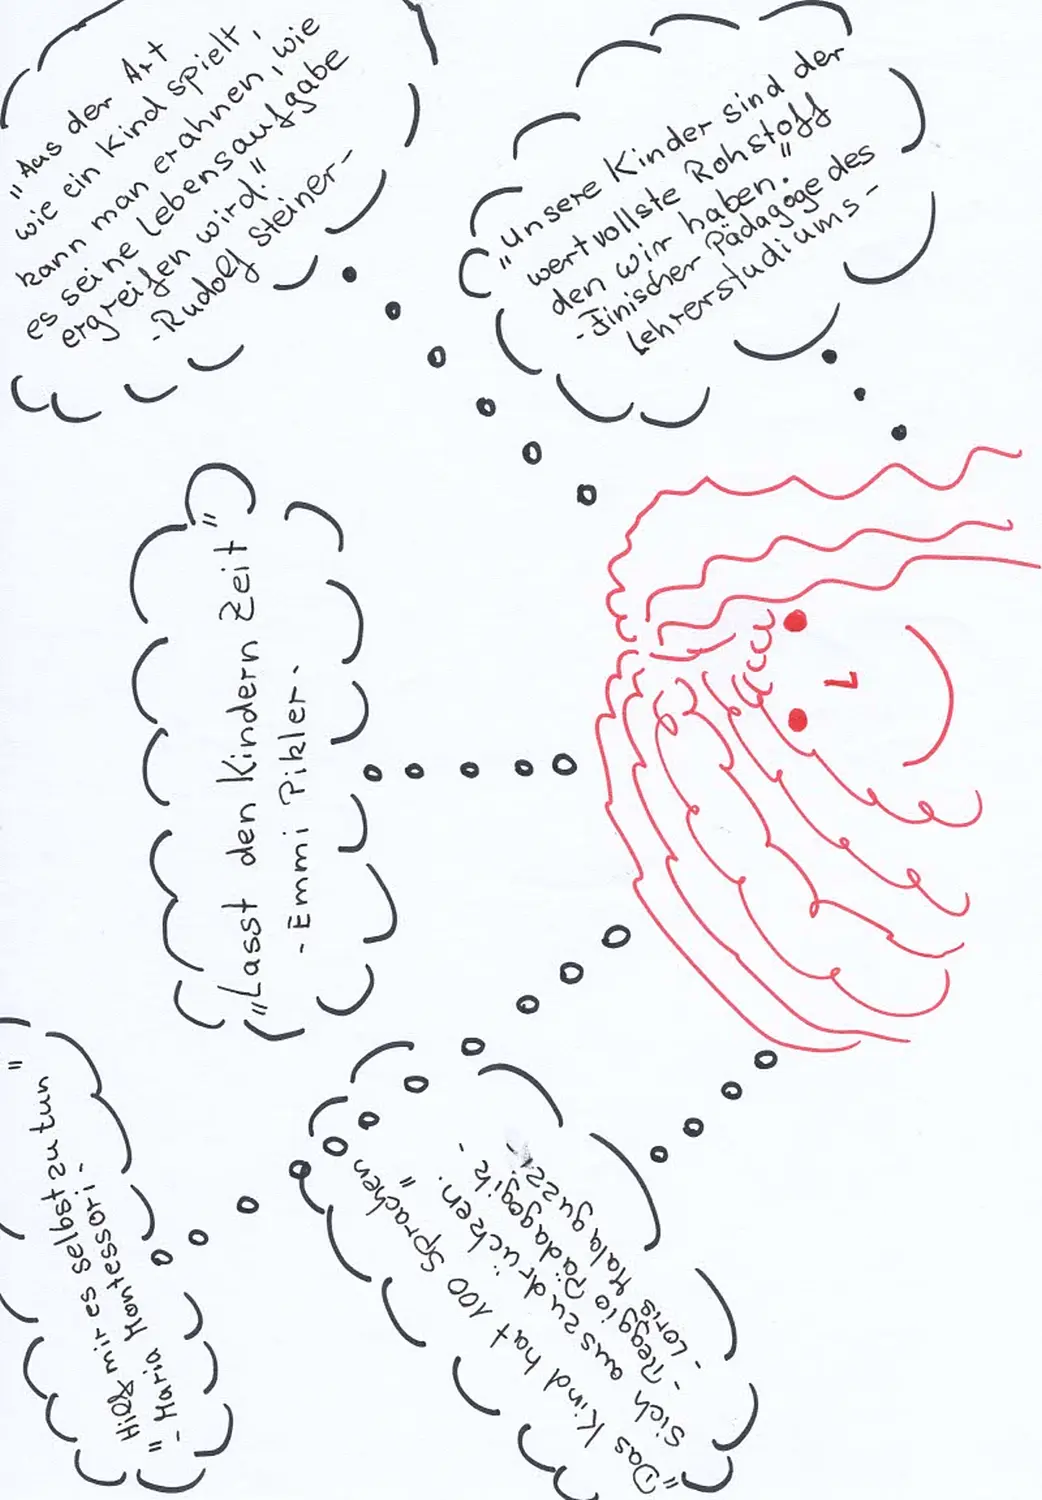 "Hilf mir es selbst zu tun"
- Maria Montessori -
"Das Kind hat 100 Sprachen
sich auszudrücken."
- Reggio Pädagogik -
- Loris Malaguzzi -
"Lasst den Kindern Zeit"
- Emmi Pikler -
"Aus der Art
wie ein Kind spielt,
kann man erahnen, wie
es seine Lebensaufgabe
ergreifen wird."
- Rudolf Steiner -
"unsere Kinder sind der
wertvollste Rohstoff
den wir haben."
- Finischer Pädagoge des
Lehrerstudiums -